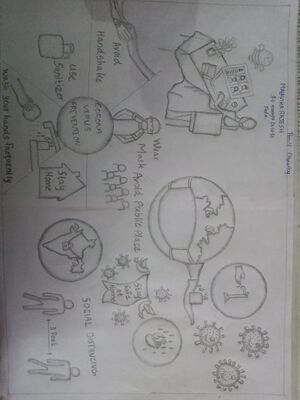 Pencil Drawing
Avoid
Handshake
Use
Sanitizer
Wash your hands Frequently
CORONA
VIRUS
PREVENTION
Wear
Mask
Avoid Public Place
Stay
Home
Stay
at
Home
SOCIAL DISTANCING
3 Feet